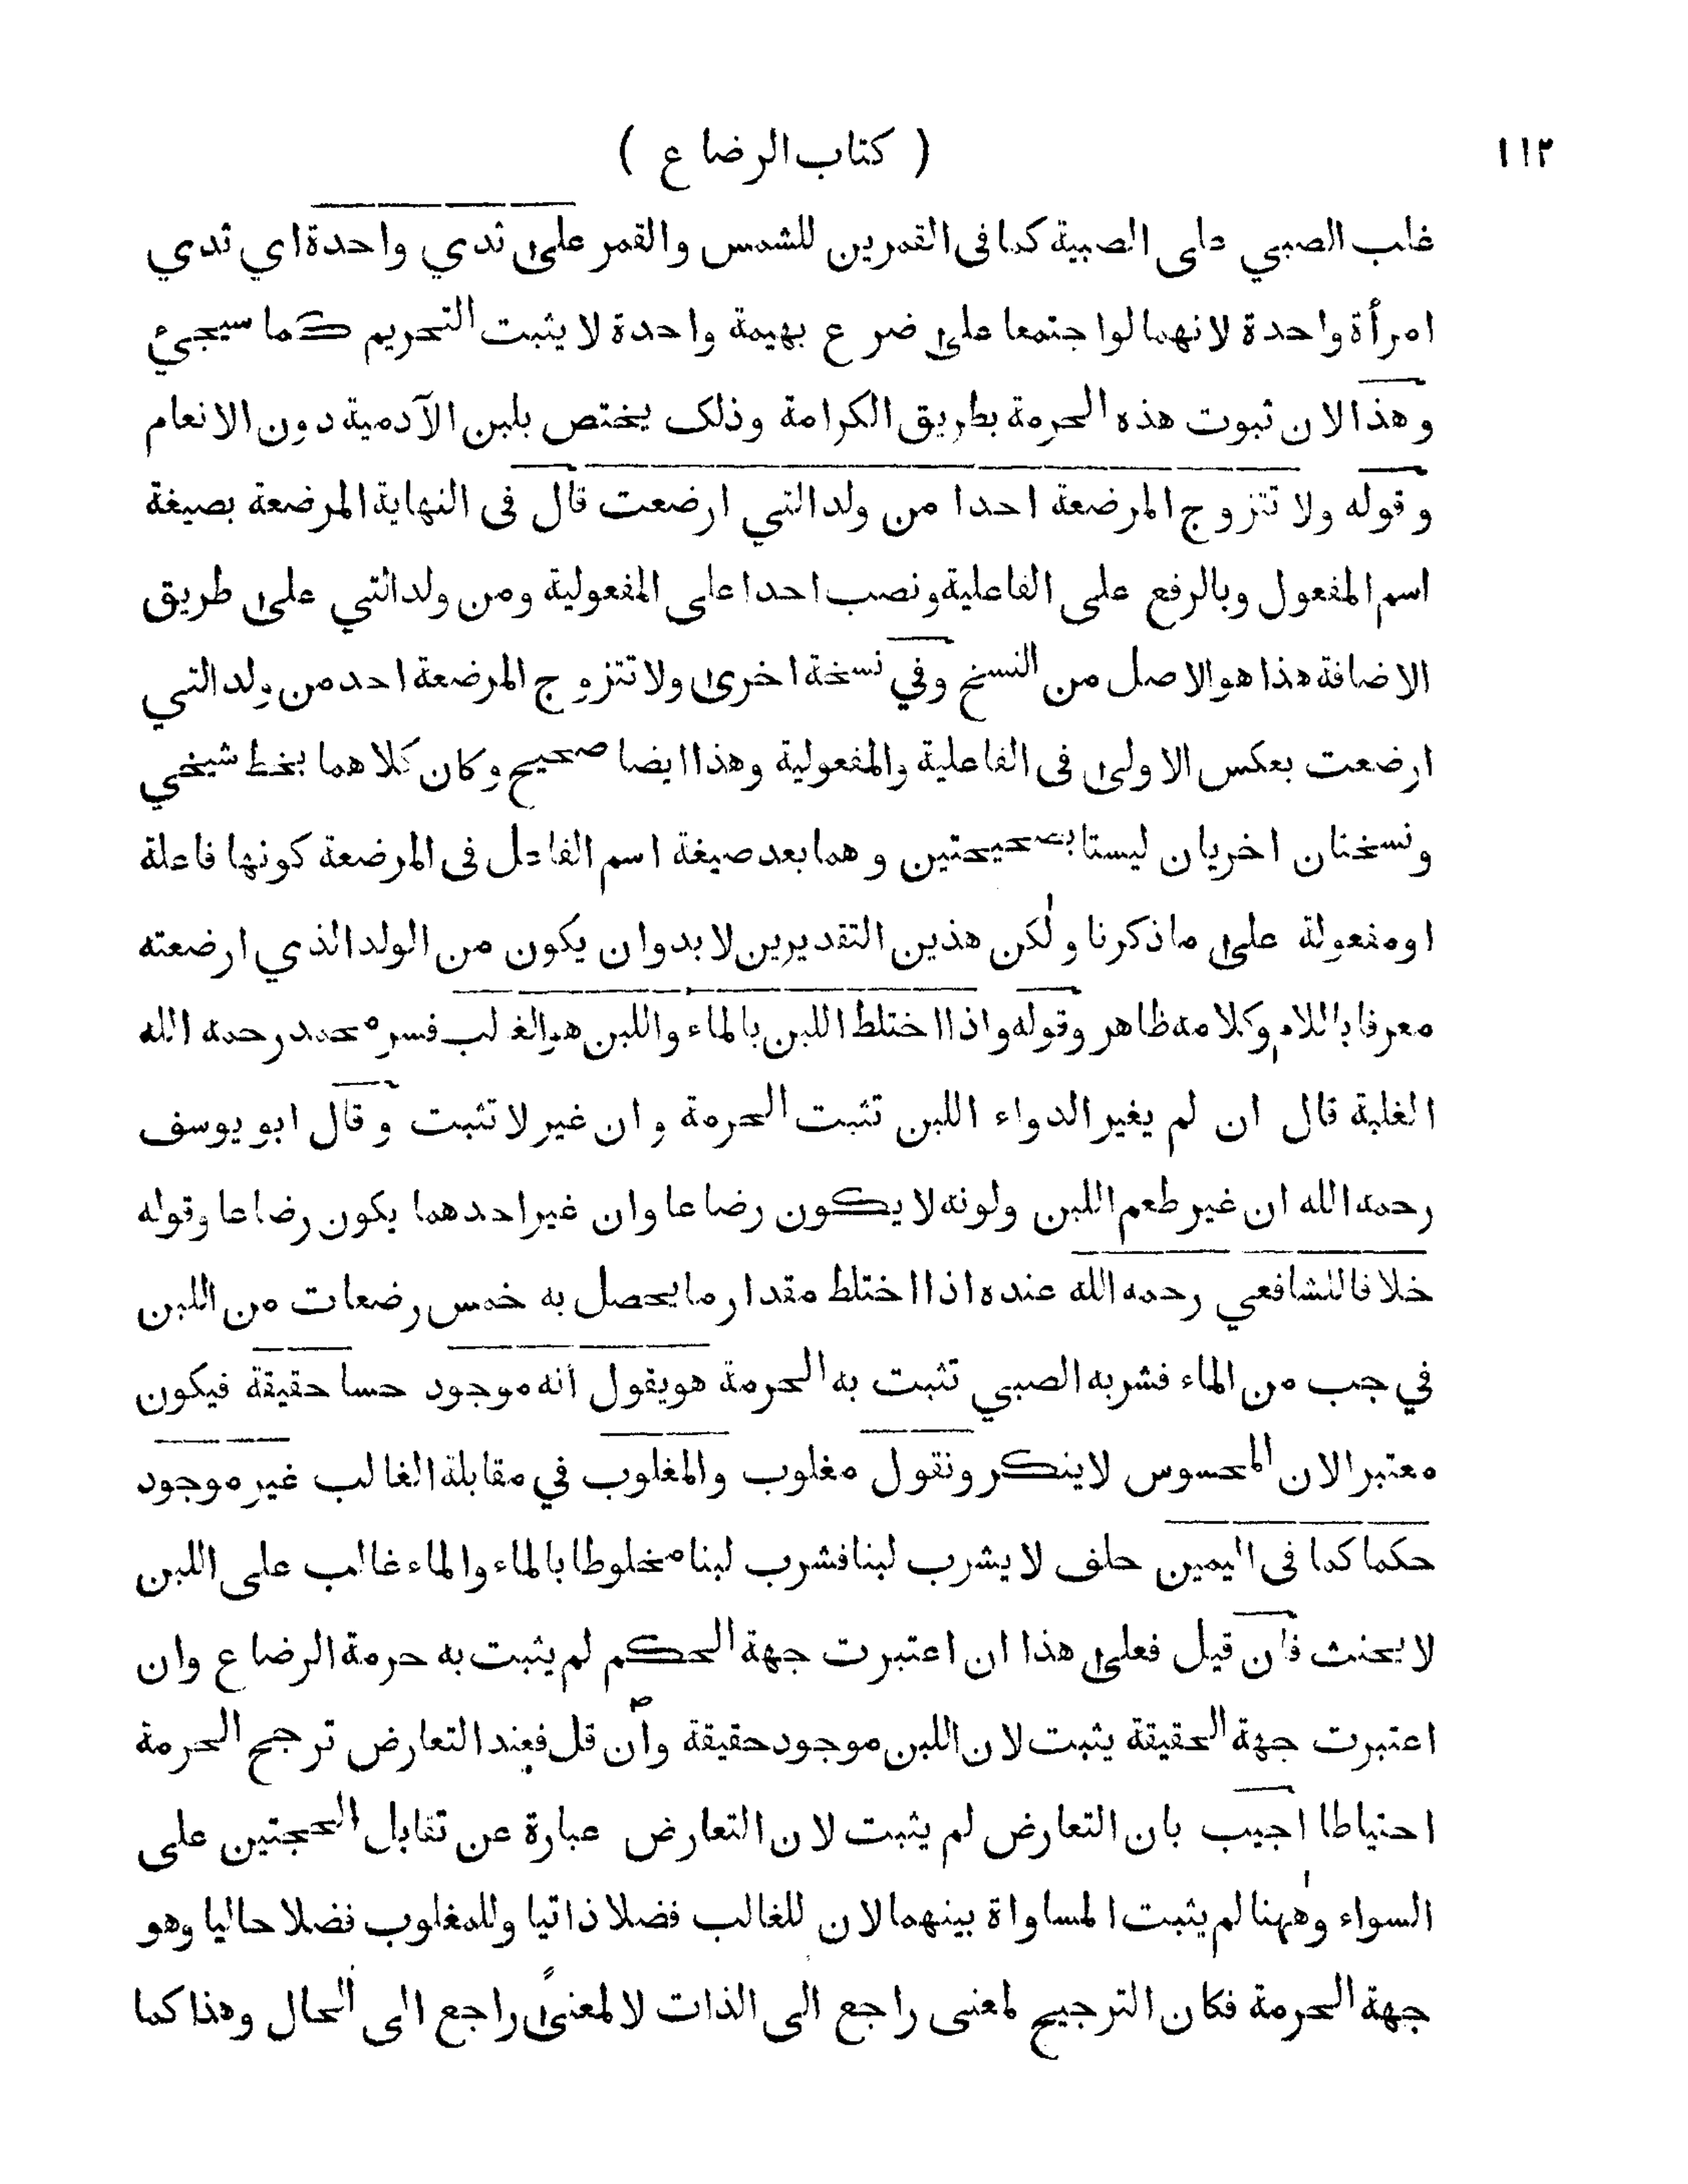 ١١٢
( كتاب الرضاع )
غلب الصبي على الصبية كما فى القمرين للشمس والقمر على ثدي واحدة اي ثدي
امرأة واحدة لانهما لو اجتمعا على ضرع بهيمة واحدة لا يثبت التحريم كما سيجئ
وهذا لان ثبوت هذه الحرمة بطريق الكرامة وذلك يختص بلبن الآدمية دون الانعام
وقوله ولا تتزوج المرضعة احدا من ولد التي ارضعت قال فى النهاية المرضعة بصيغة
اسم المفعول وبالرفع على الفاعلية ونصب احدا على المفعولية ومن ولد التي على طريق
الاضافة هذا هو الاصل من النسخ وفي نسخة اخرى ولا تتزوج المرضعة احد من ولد التي
ارضعت بعكس الاولى فى الفاعلية والمفعولية وهذا ايضا صحيح وكان كلاهما بخط شيخي
ونسختان اخريان ليستا بصحيحتين وهما بعد صيغة اسم الفاعل فى المرضعة كونها فاعلة
او مفعولة على ما ذكرنا ولكن هذين التقديرين لا بد وان يكون من الولد الذي ارضعته
معرفا باللام وكلامه ظاهر وقوله واذا اختلط اللبن بالماء واللبن هو الغالب فسر محمد رحمه الله
الغلبة قال ان لم يغير الدواء اللبن تثبت الحرمة وان غير لا تثبت وقال ابو يوسف
رحمه الله ان غير طعم اللبن ولونه لا يكون رضاعا وان غير احدهما يكون رضاعا وقوله
خلافا للشافعي رحمه الله عنده اذا اختلط مقدار ما يحصل به خمس رضعات من اللبن
في جب من الماء فشربه الصبي تثبت به الحرمة هو يقول انه موجود حسا حقيقة فيكون
معتبرا لان المحسوس لا ينكر ونقول مغلوب والمغلوب في مقابلة الغالب غير موجود
حكما كما فى اليمين حلف لا يشرب لبنا فشرب لبنا مخلوطا بالماء والماء غالب على اللبن
لا يحنث فان قيل فعلى هذا ان اعتبرت جهة الحكم لم يثبت به حرمة الرضاع وان
اعتبرت جهة الحقيقة يثبت لان اللبن موجود حقيقة وان قل فعند التعارض ترجح الحرمة
احتياطا اجيب بان التعارض لم يثبت لان التعارض عبارة عن تقابل الحجتين على
السواء وههنا لم يثبت المساواة بينهما لان للغالب فضلا ذاتيا وللمغلوب فضلا حاليا وهو
جهة الحرمة فكان الترجيح لمعنى راجع الى الذات لا لمعنى راجع الى الحال وهذا كما